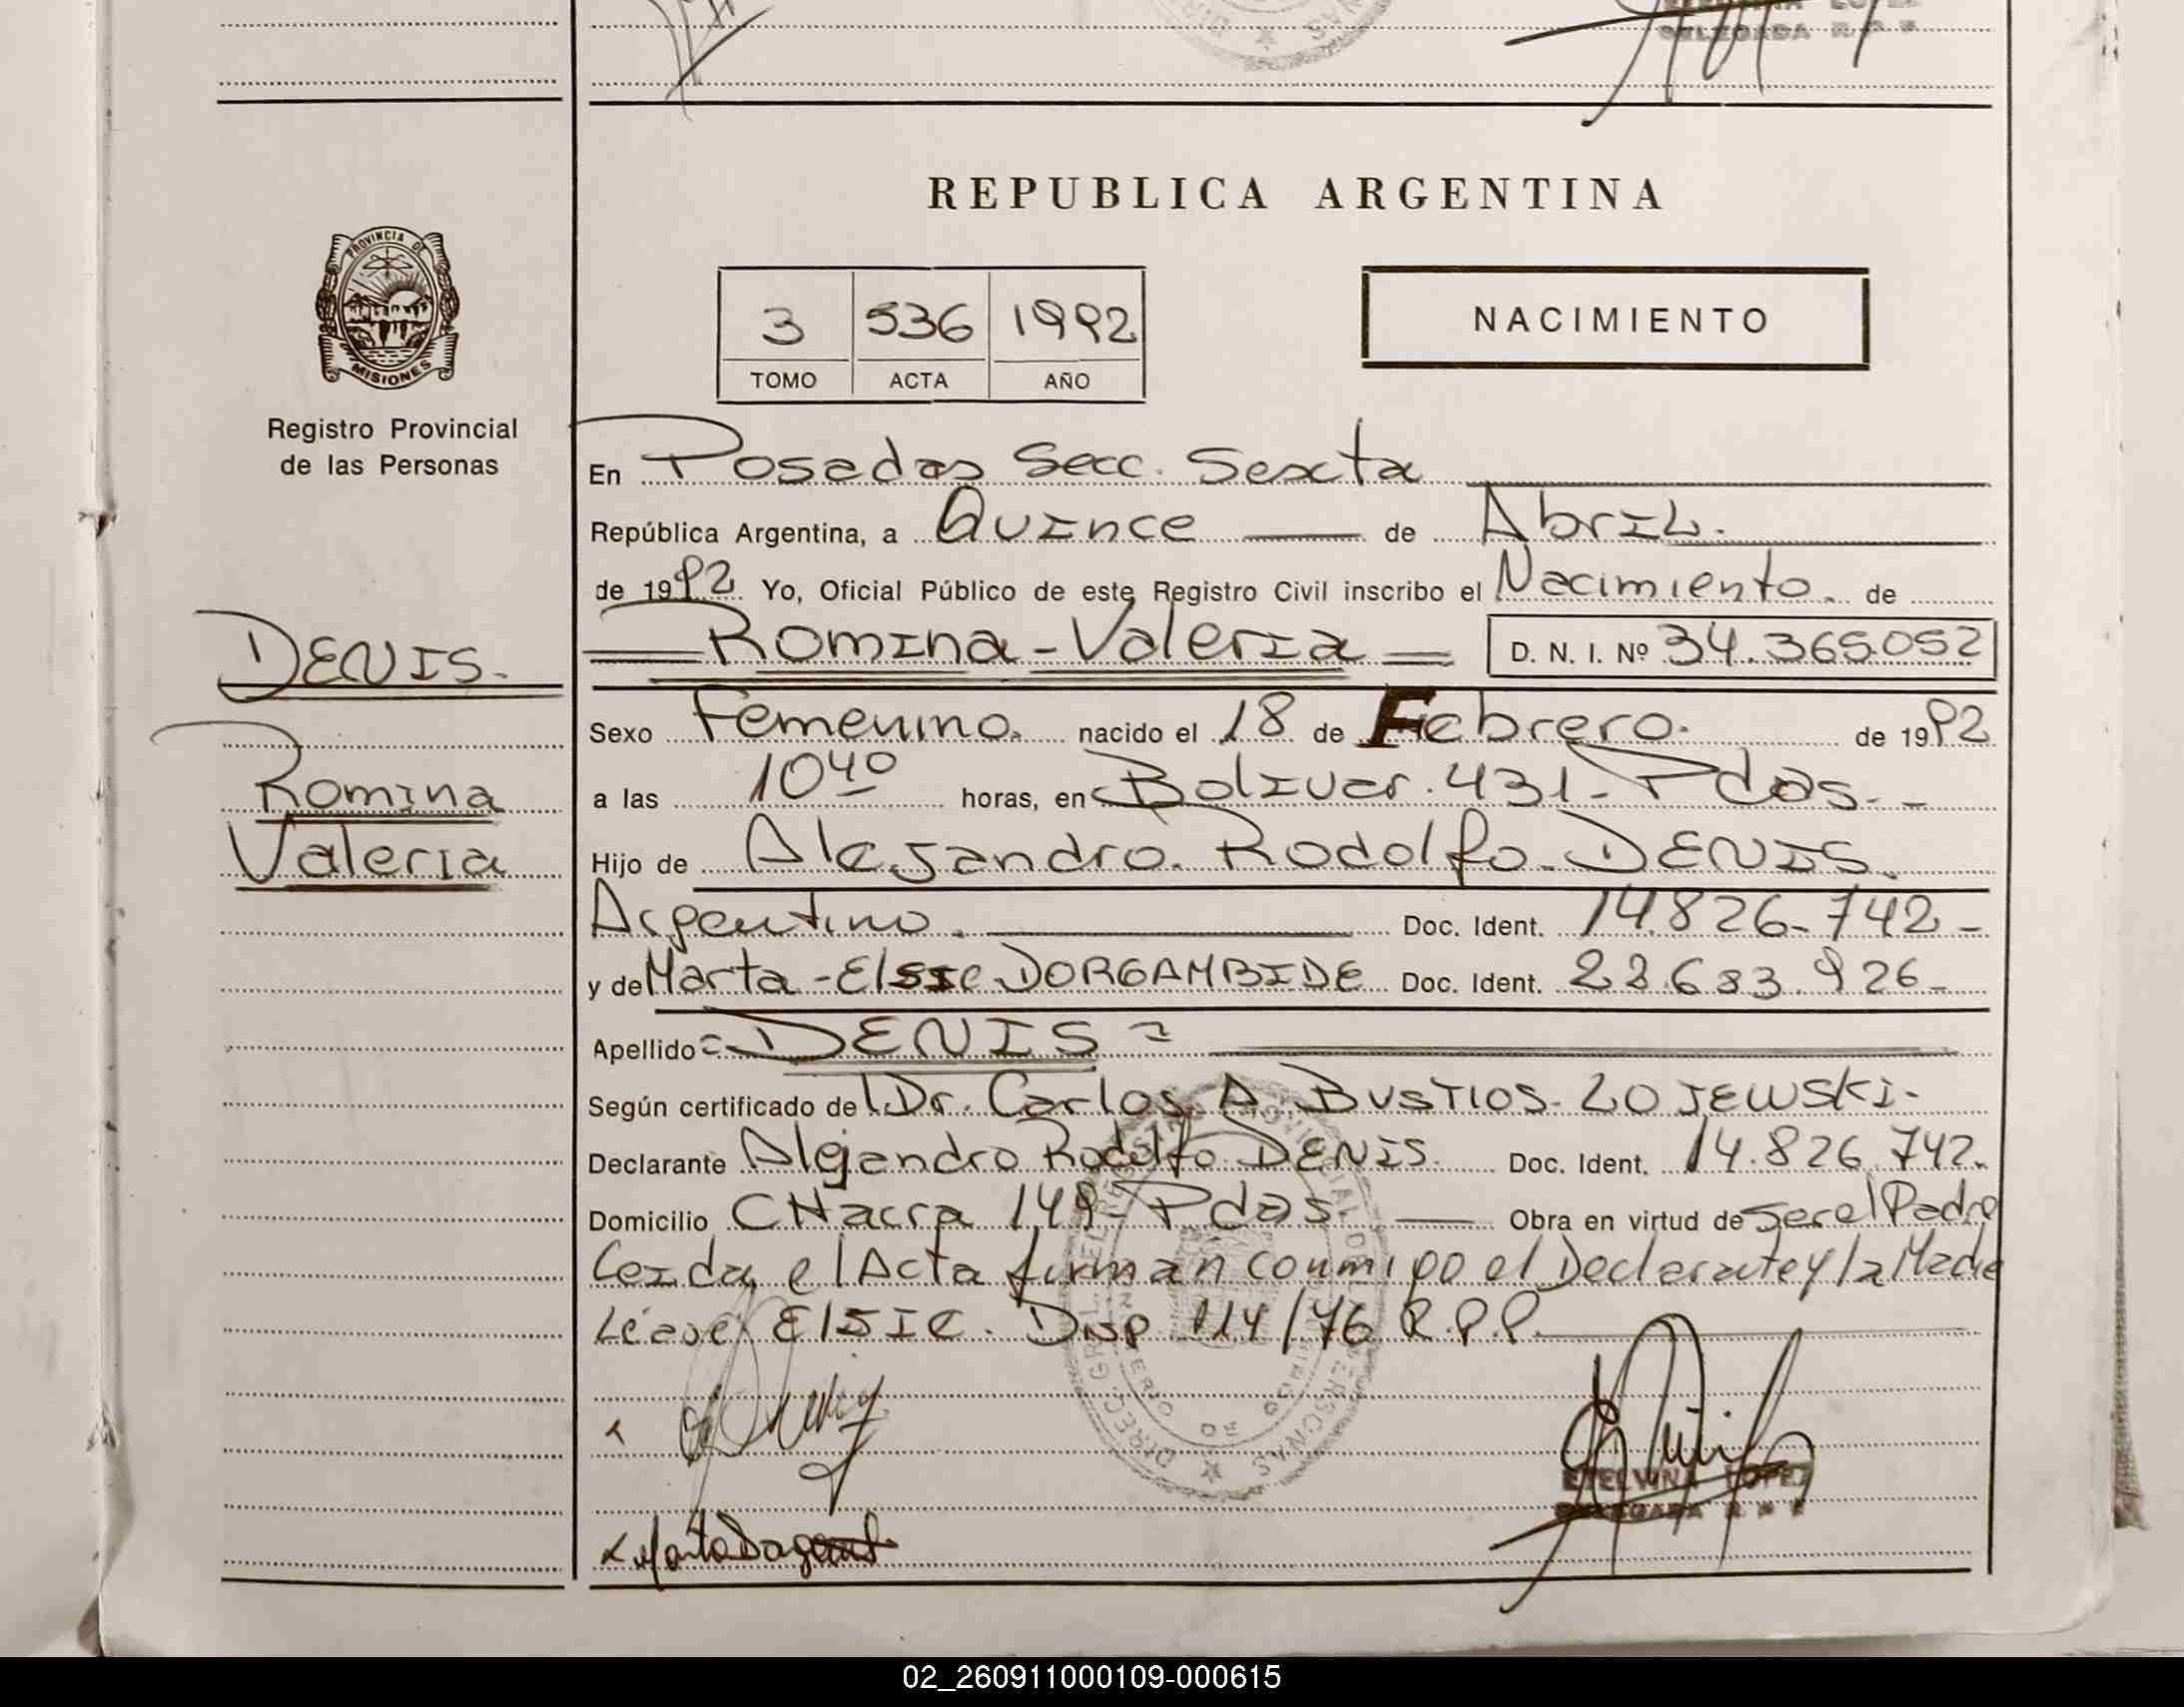 REPUBLICA ARGENTINA
PROVINCIA DE
MISIONES
Registro Provincial
de las Personas
3 536 1992
TOMO ACTA AÑO
NACIMIENTO
En Posadas Secc. Sexta
República Argentina, a Quince de Abril.
de 1992 Yo, Oficial Público de este Registro Civil inscribo el Nacimiento. de
DENIS.
Romina
Valeria
Romina-Valeria D. N. I. Nº 34.365.052
Sexo Femenino. nacido el 18 de Febrero. de 1992
a las 10 40 horas, en Bolivar. 431- Pdas.-
Hijo de Alejandro. Rodolfo. DENIS.
Argentino. Doc. Ident. 14.826.742-
y de Marta - Elssie DORGAMBIDE Doc. Ident. 22.683.926-
Apellido = DENIS =
Según certificado de l Dr. Carlos A. BUSTIOS- LOJEWSKI-
Declarante Alejandro Rodolfo DENIS. Doc. Ident. 14.826.742.
Domicilio CHacra 149- Pdas. Obra en virtud de Ser el Padre
Leida el Acta firman conmigo el Declarante y la Madre
Léase: ElSIE. Disp 114/76 R.P.P.
ETELVINA LOPEZ
DELEGADA R P P
02_260911000109-000615